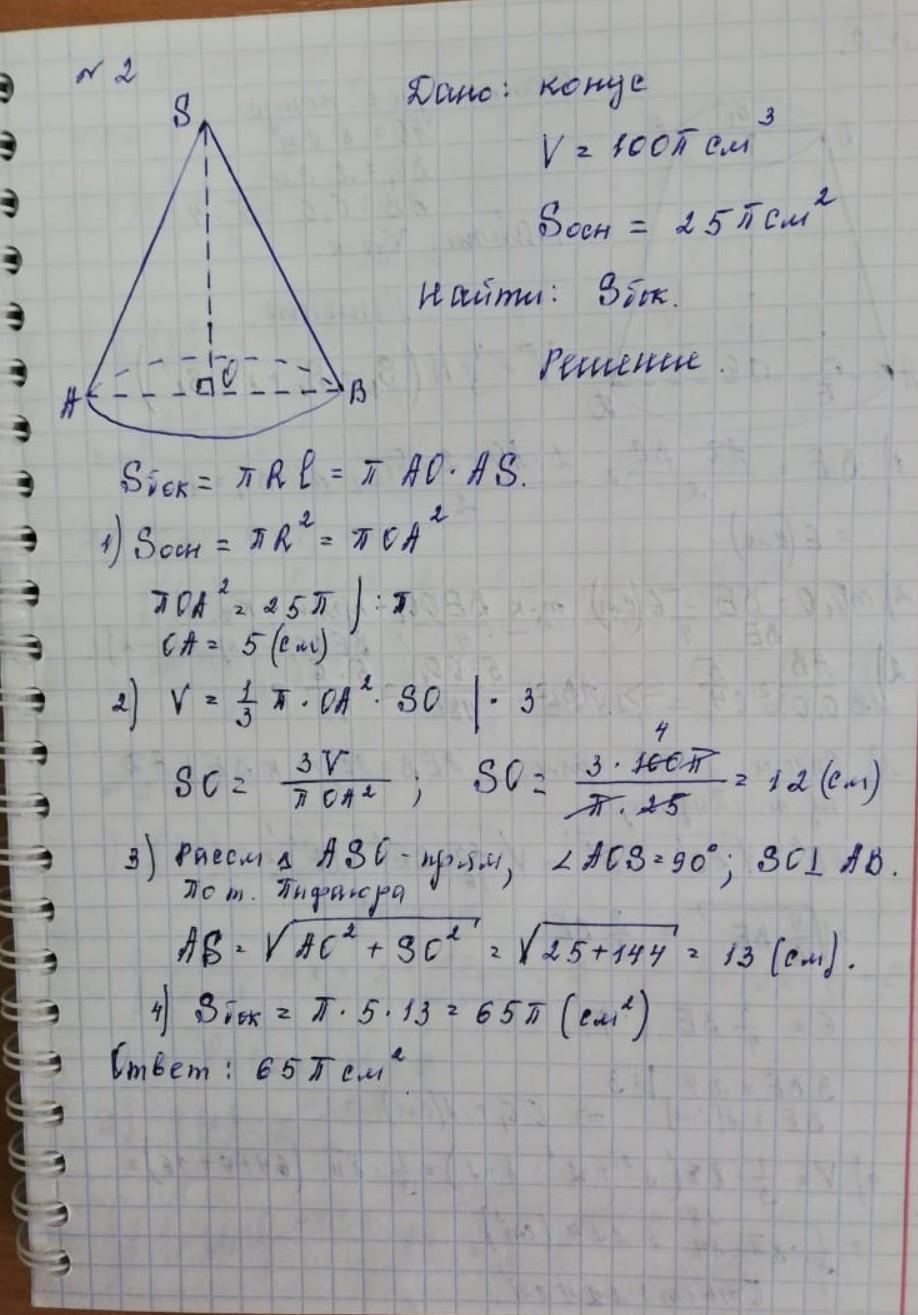 № 2
S
A
O
B
Дано: конус
V = 100π см³
Sосн = 25π см²
Найти: Sбок.
Решение.
Sбок = πRl = π AO · AS.
1) Sосн = πR² = πOA²
πOA² = 25π | : π
OA = 5 (см)
2) V = 1/3 π · OA² · SO | · 3
SO = 3V / πOA² ; SO = 3 · 100π / π · 25 = 12 (см)
4
3) Рассм Δ ASO - прям, ∠AOS = 90°; SO ⊥ AB.
По т. Пифагора
AS = √AO² + SO² = √25+144 = 13 (см).
4) Sбок = π · 5 · 13 = 65π (см²)
Ответ: 65π см²